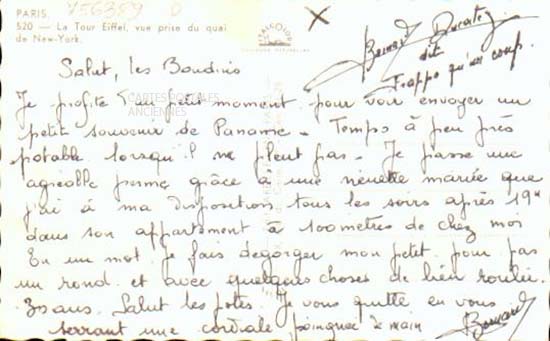 PARIS.
520 — La Tour Eiffel, vue prise du quai
de New-York.
V56359 0
Bernard
dit
Frappe qu'un coup.
Salut, les Boudinis
Je profite d'un petit moment pour vous envoyer un
petit souvenir de Paname. Temps à peu près
potable lorsqu'il ne pleut pas. Je passe une
agréable perme grâce à une minette mariée que
j'ai à ma disposition tous les soirs après 19H
dans son appartement à 100 mètres de chez moi
En un mot je fais dégorger mon petit pour pas
un rond et avec quelques choses de bien roulée.
30 ans. Salut les potes. Je vous quitte en vous
serrant une cordiale poignée de main
Bernard
CARTES POSTALES
ANCIENNES